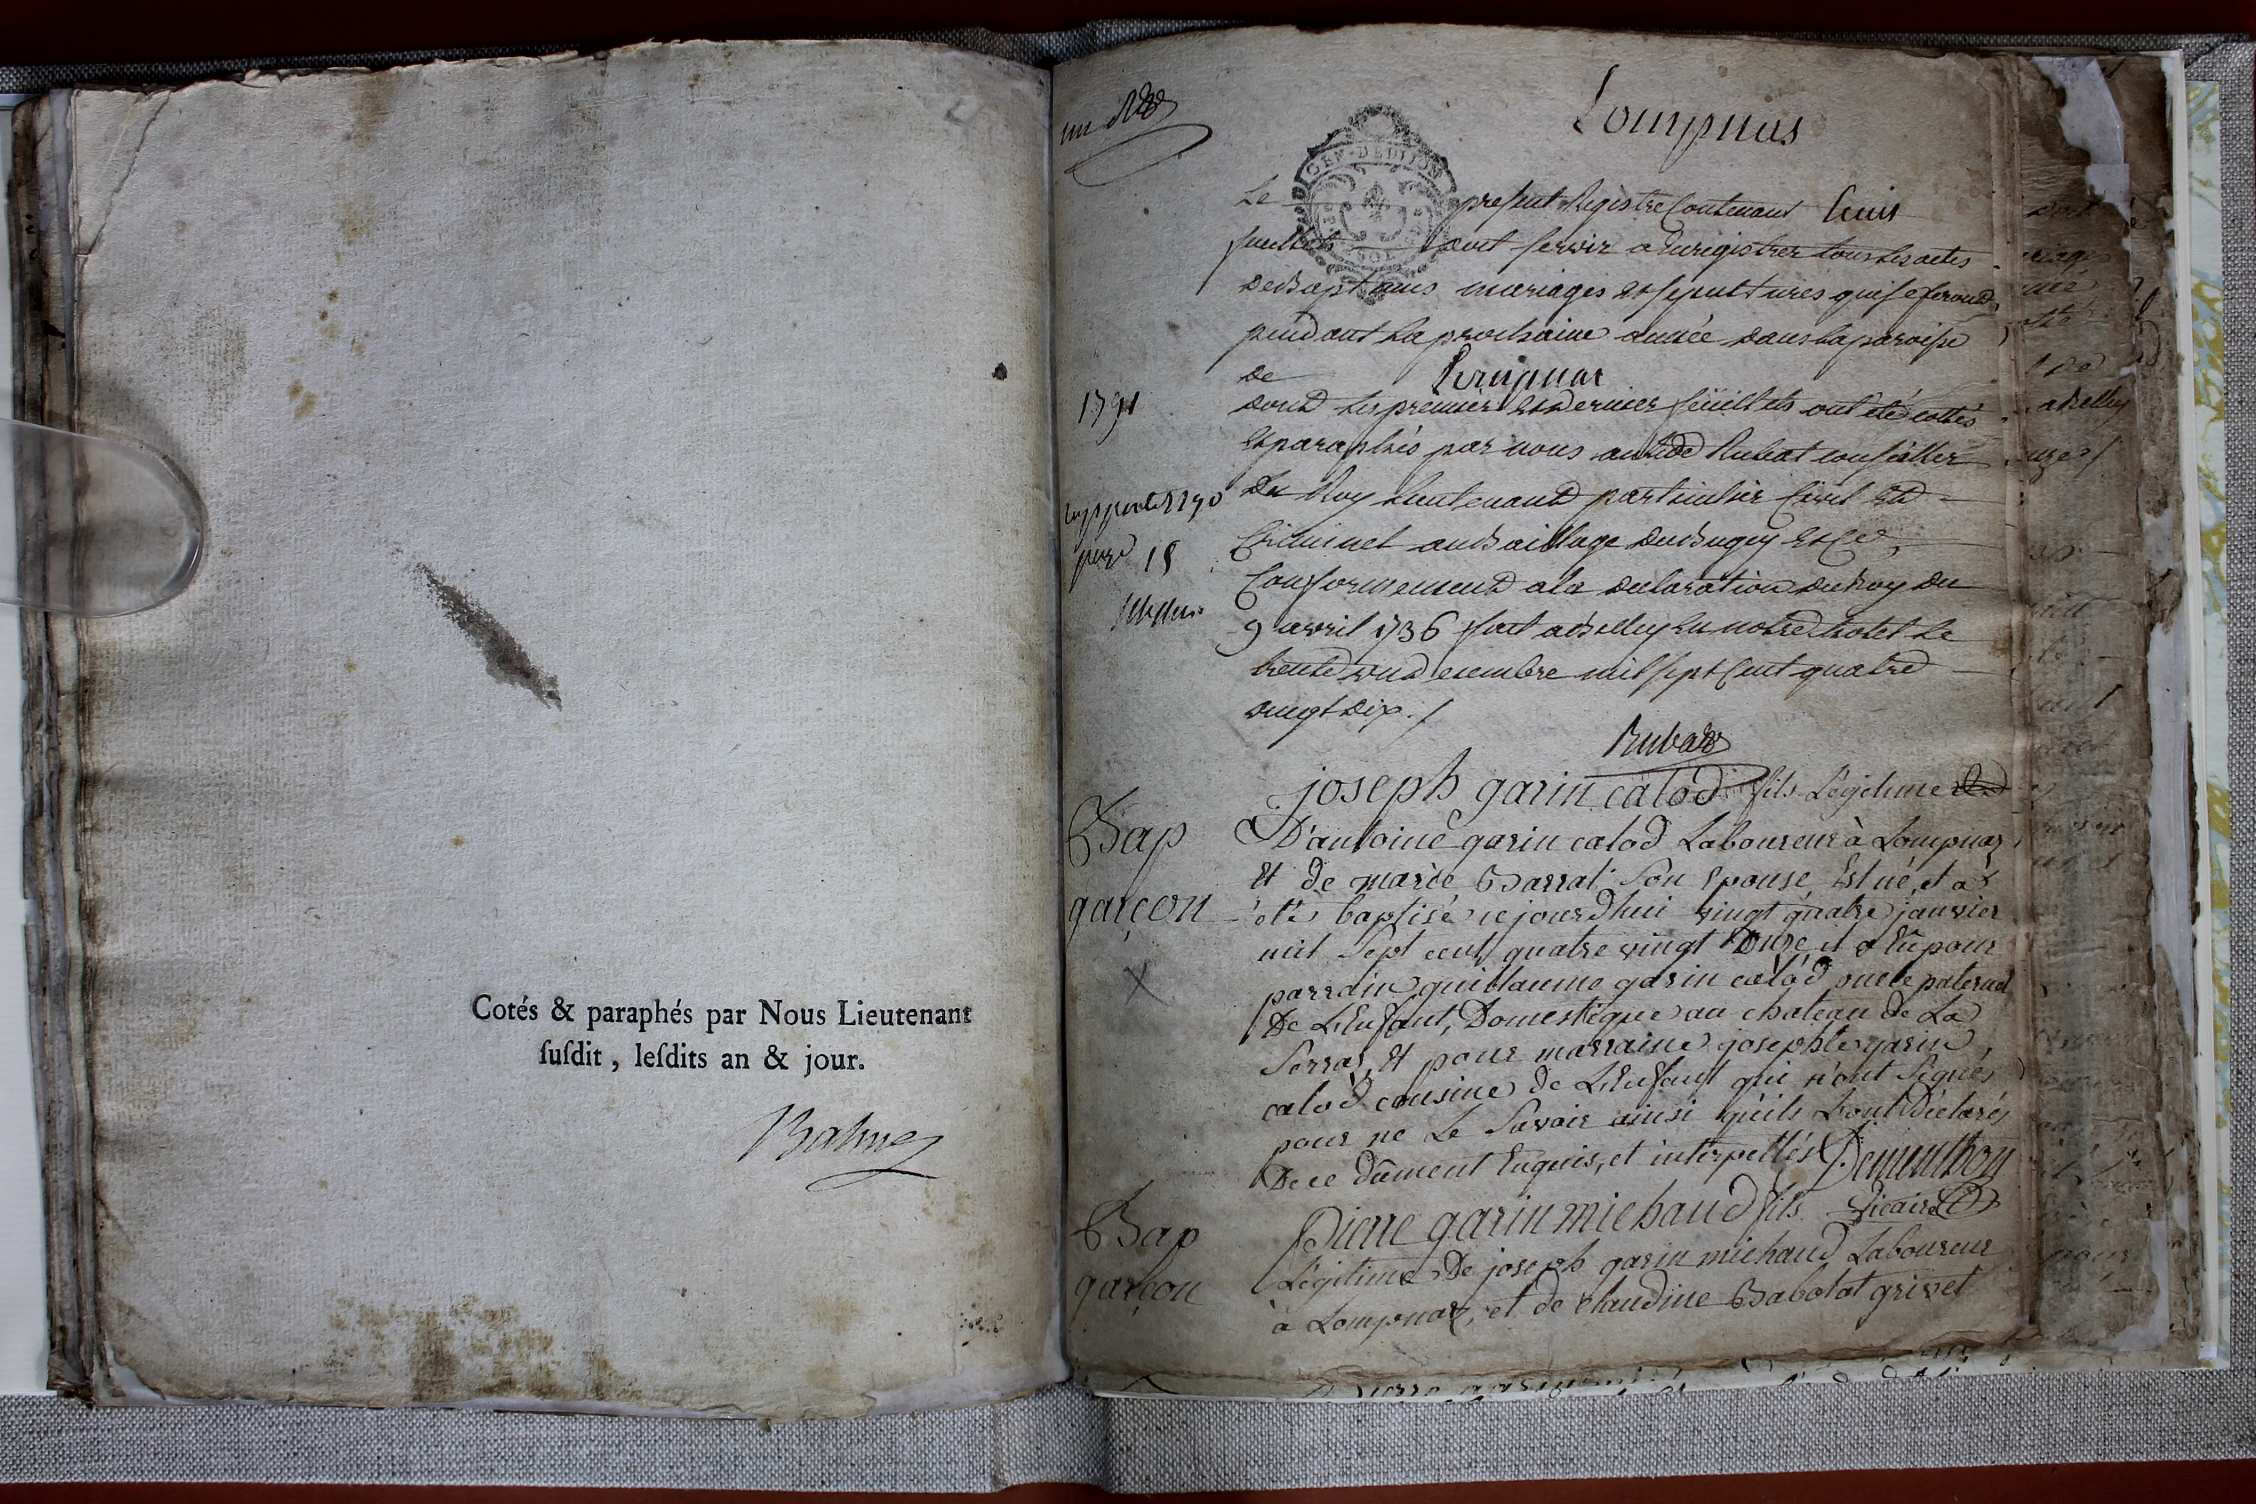 Cotés & paraphés par Nous Lieutenant
ſuſdit, leſdits an & jour.
Balme
un
Lompnas
GEN. DE DIJON
Le present Registre Contenant
feuillets doit servir a Enregistrer tous les actes
de Baptemes mariages et sepultures qui se feront
pendant La prochaine année dans la paroisse
de Lompnas
1791
dont les premier et dernier feüillets ont eté cottés
et paraphés par nous Rubat conseiller
du Roy Lieutenant particulier Civil et
Criminel au Bailliage du Bugey
18
Conformement a la declaration du Roy du
9 avril 1736 fait a Belley en notre hotel Le
trente un decembre mil sept Cent quatre
vingt dix ./
Rubat
Bap
garçon
joseph garin calod fils Légitime
D'antoine garin calod Laboureur à Lompnaz
Et de marie Barrat Son Epouse, Est né, et a
été baptisé ce jourd'hui vingt quatre janvier
mil Sept cent quatre vingt onze, il a Eû pour
parrain guillaume garin calod oncle paternel
De L'Enfant, Domestique au chateau de La
Serraz, Et pour marraine josephte garin
calod cousine de L'Enfant qui n'ont Signés
pour ne Le Savoir ainsi qu'ils L'ont Déclarés
De ce dûment Enquis, et interpellés Dementhon
Vicaire
Bap
garçon
Pierre garin michaud fils
Légitime De joseph garin michaud Laboureur
à Lompnaz, et de Claudine Babolat grivet